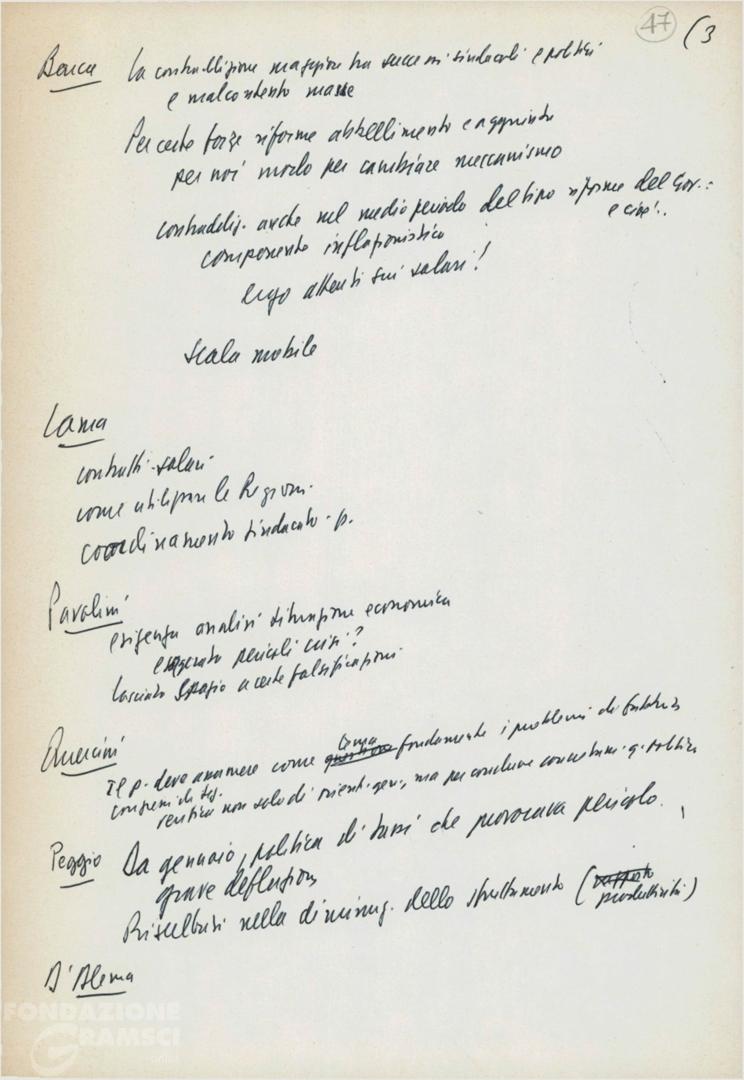 47 (3
La contraddizione maggiore tra successi sindacali e politici
e malcontento masse
Per certe forze riforme abbellimento e aggiunta
per noi modo per cambiare meccanismo
contraddiz. anche nel medio periodo del tipo riforme del Gov.:
e cioè..
componente inflazionistica
ergo attenti sui salari!
scala mobile
Lama
contratti - salari
come utilizzare le Regioni
coordinamento sindacato - p.
Pavolini
esigenza analisi situazione economica
esagerato pericoli crisi?
lasciato spazio a certe falsificazioni
Quercini
Il p. deve assumere come questione fondamentale i problemi di fabbrica
tema
congressi di sez.
non solo di orient. gen., ma per concludere q. politica
Peggio Da gennaio, politica di bassi che provocava pericolo.
grave deflazione
nella diminuz. dello sfruttamento (rapporto
produttività)
D'Alema
FONDAZIONE
GRAMSCI